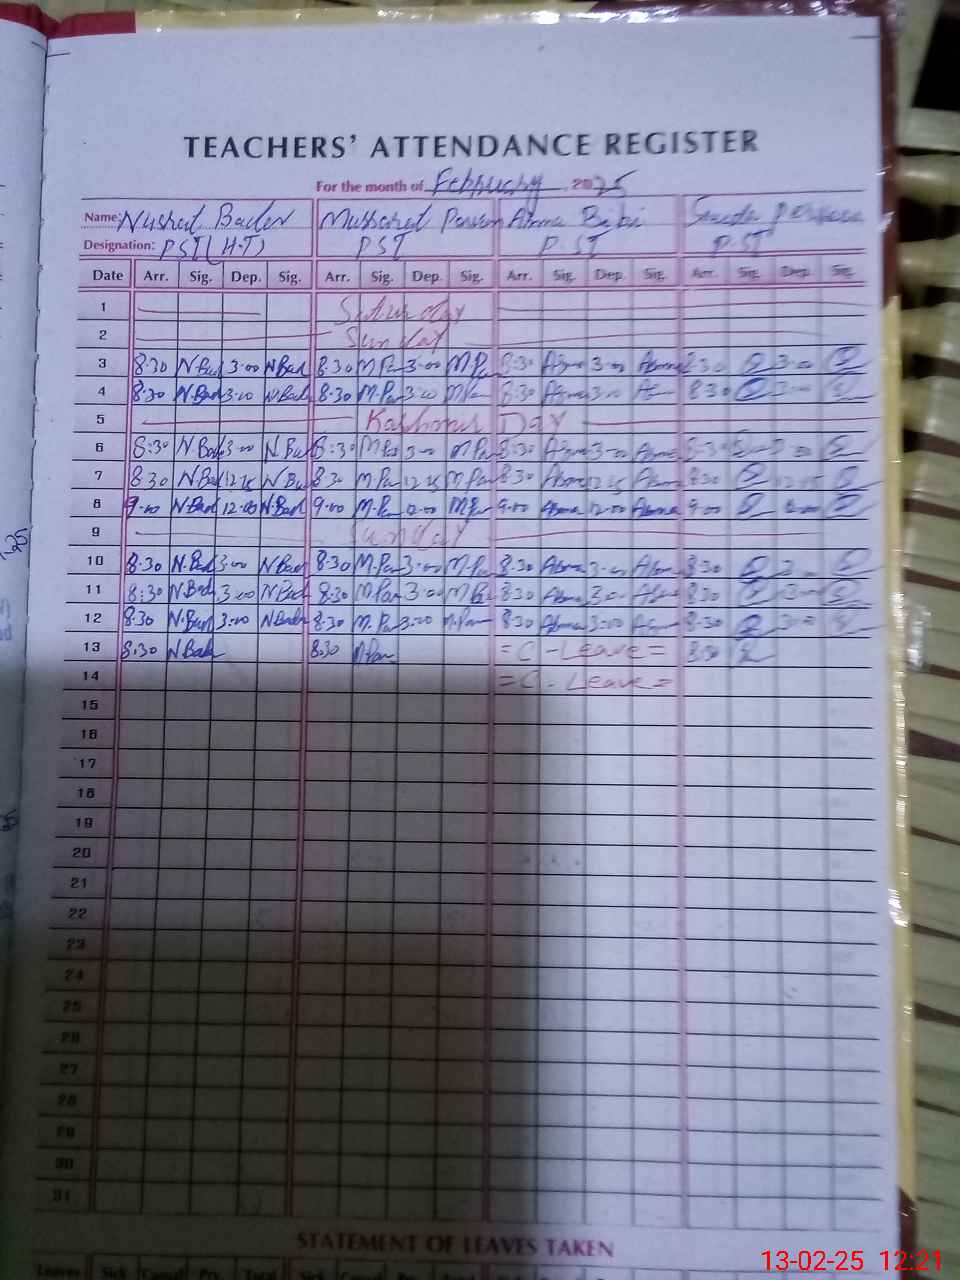 TEACHERS' ATTENDANCE REGISTER
For the month of February, 2025
Name: Nushrat Bader Mussarat Perveen Asma Bibi
Designation: PST (H.T) PST P.ST P.ST
Date Arr. Sig. Dep. Sig. Arr. Sig. Dep. Sig. Arr. Sig. Dep. Sig. Arr. Sig. Dep. Sig.
1 Saturday
2 Sunday
3 8:30 N.Bad 3:00 N.Bad 8:30 M.Par 3:00 M.Pa 8:30 Asma 3:00 Asma 8:30 3:00
4 8:30 N.Bad 3:00 N.Bad 8:30 M.Par 3:00 M.Par 8:30 Asma 3:00 8:30 3:00
5 Kashmir Day
6 8:30 N Bad 3:00 N.Bad 8:30 M.Par 3:00 M.Pa 8:30 Asma 3:00 Asma 8:30
7 8:30 N.Bad 12:15 N.Bad 8:30 M.Par 12:15 M.Par 8:30 Asma 12:15 Asma 8:30 12:15
8 9:00 N.Bad 12:00 N.Bad 9:00 M.Par 12:00 M.Par 9:00 Asma 12:00 Asma 9:00
9 Sunday
10 8:30 N.Bad 3:00 N.Bad 8:30 M.Par 3:00 M.Par 8:30 Asma 3:00 Asma 8:30
11 8:30 N.Bad 3:00 N.Bad 8:30 M.Par 3:00 8:30 Asma 3:00 Asma 8:30 3:00
12 8:30 N.Bad 3:00 N.Bad 8:30 M.Par 3:00 M.Par 8:30 Asma 3:00 Asma 8:30 3:00
13 8:30 N.Bad 8:30 M.Par = C - Leave = 8:30
14 = C - Leave =
15
16
17
18
19
20
21
22
23
24
25
26
27
28
29
30
31
STATEMENT OF LEAVES TAKEN
Leaves Sick Casual Total Sick Casual
13-02-25 12:21